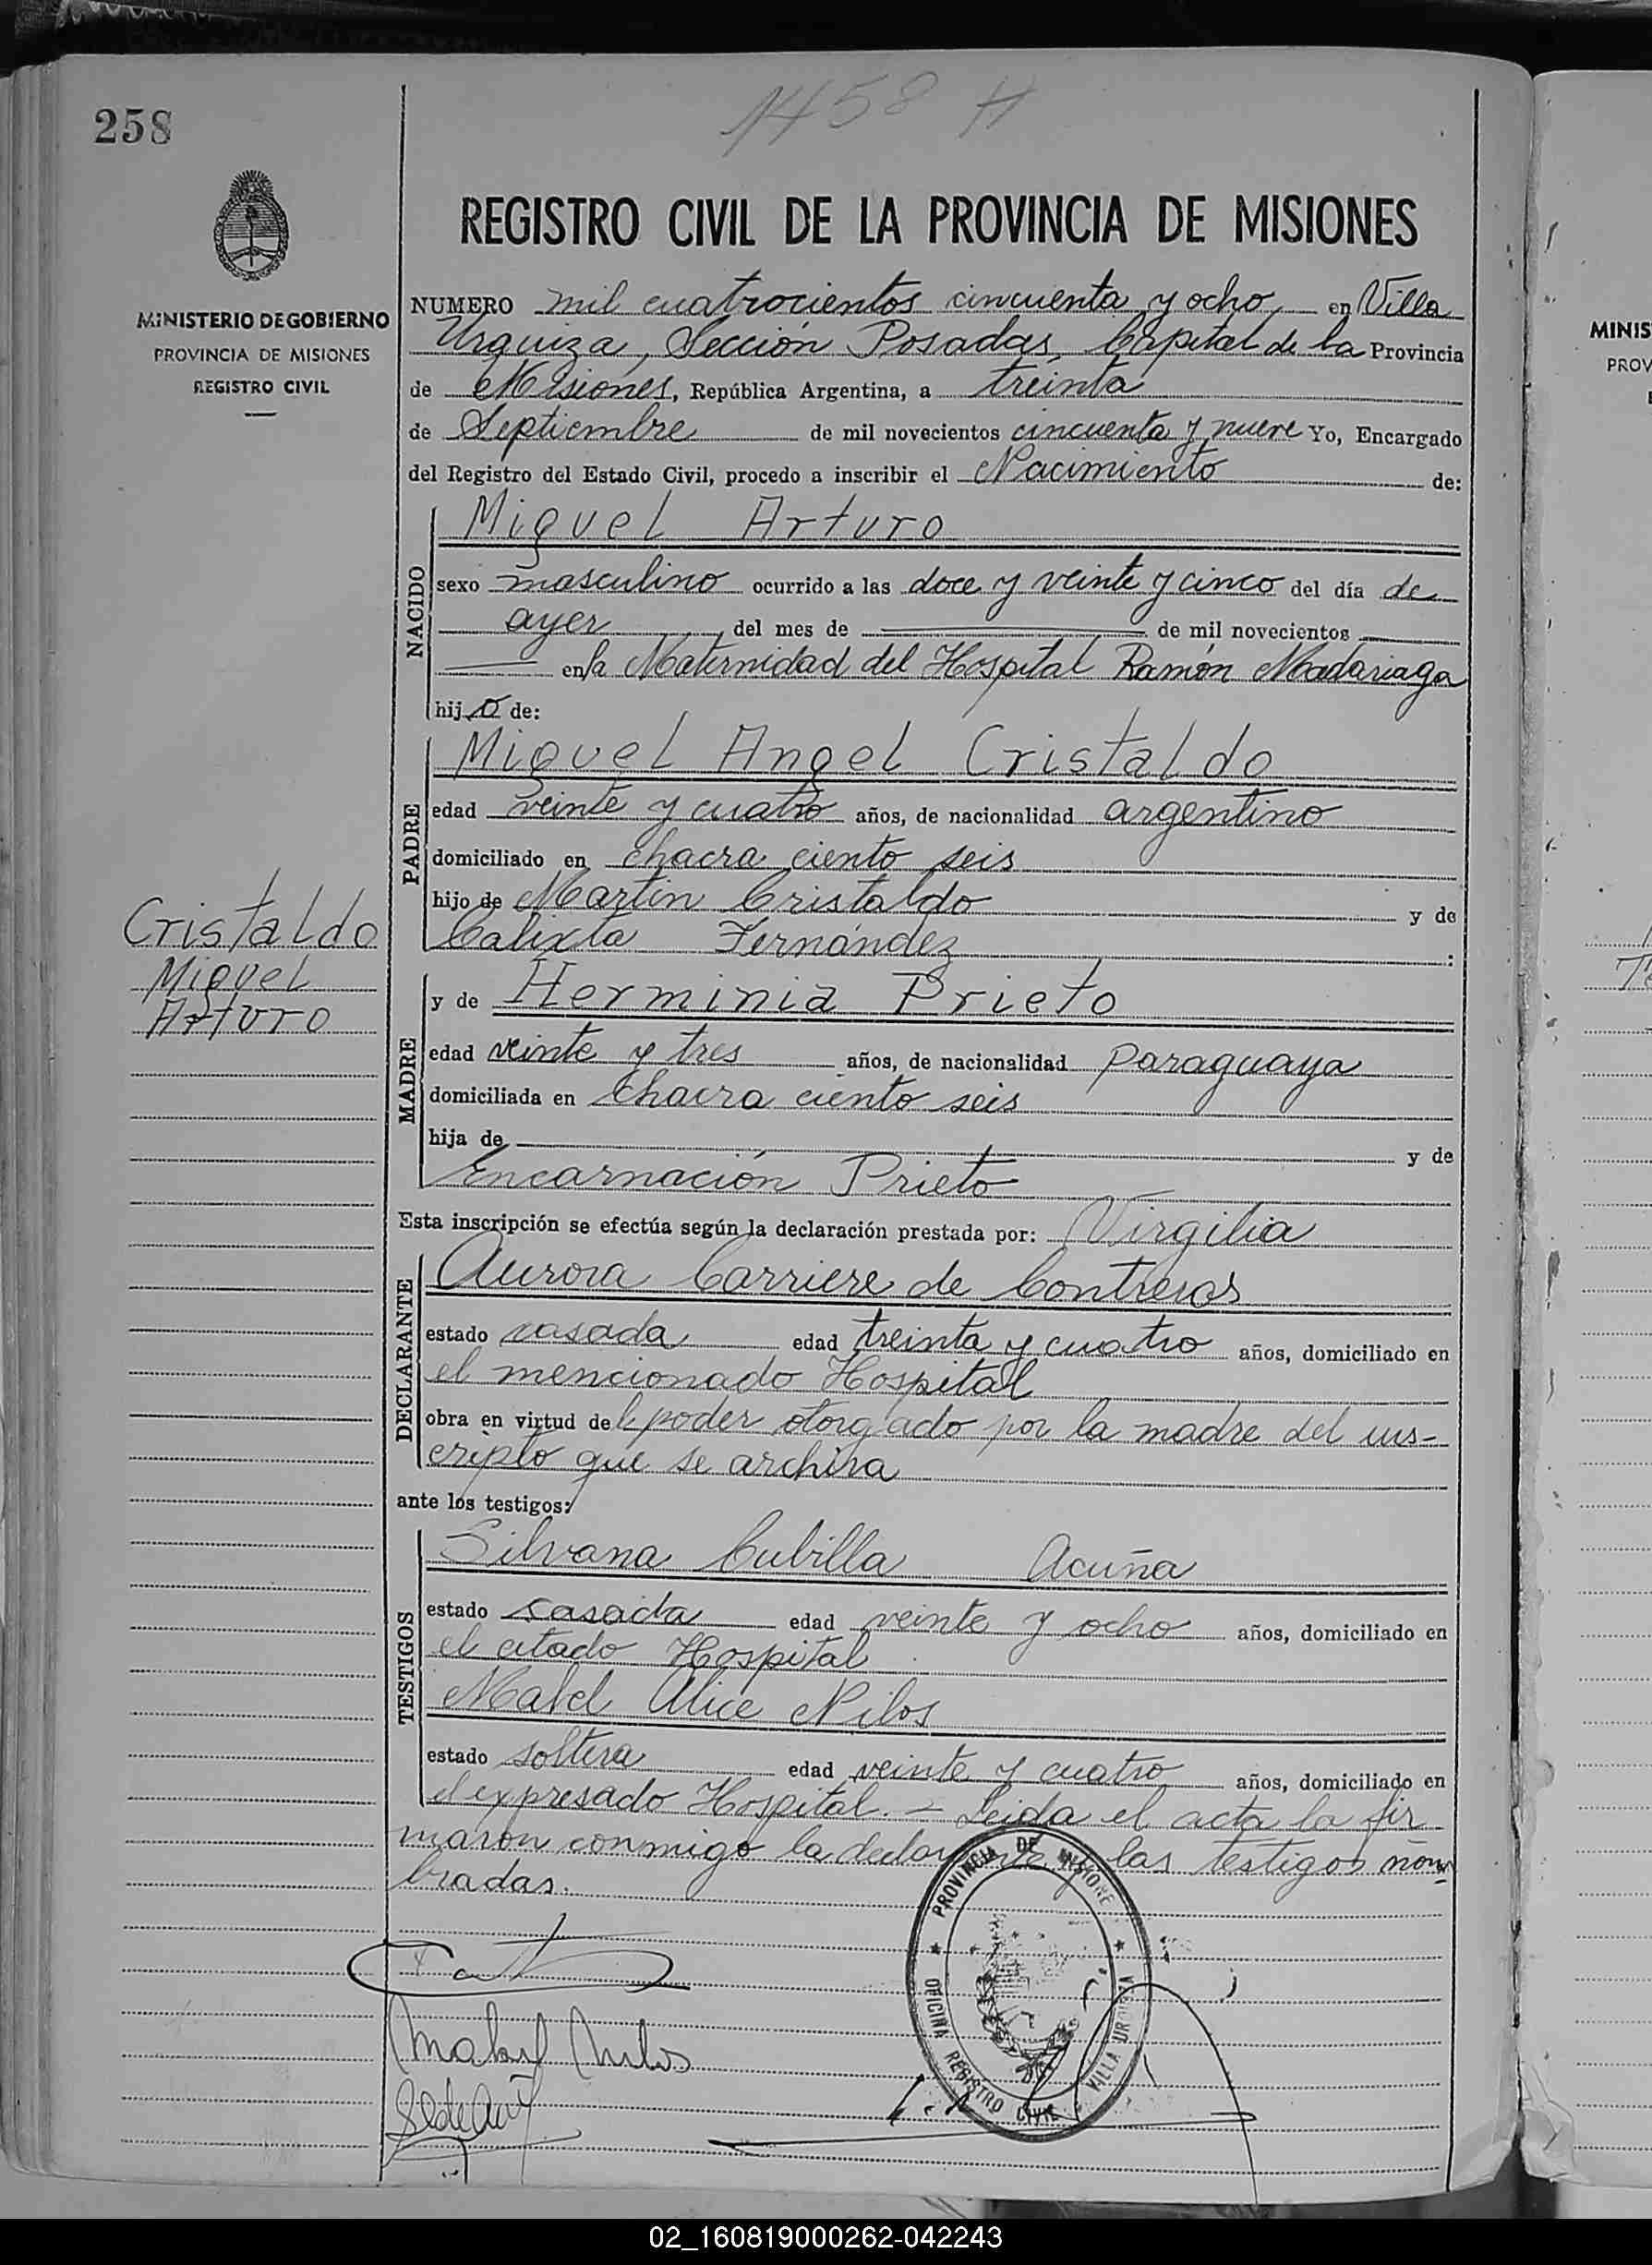 258
1458 H
REGISTRO CIVIL DE LA PROVINCIA DE MISIONES
MINISTERIO DE GOBIERNO
PROVINCIA DE MISIONES
REGISTRO CIVIL
NUMERO mil cuatrocientos cincuenta y ocho en Villa
Urquiza, Sección Posadas, Capital de la Provincia
de Misiones, República Argentina, a treinta
de Septiembre de mil novecientos cincuenta y nueve Yo, Encargado
del Registro del Estado Civil, procedo a inscribir el Nacimiento de:
NACIDO
Miguel Arturo
sexo masculino ocurrido a las doce y veinte y cinco del día de
ayer del mes de de mil novecientos
en la Maternidad del Hospital Ramón Madariaga
hijo de:
PADRE
Miguel Angel Cristaldo
edad veinte y cuatro años, de nacionalidad argentino
domiciliado en chacra ciento seis
hijo de Martín Cristaldo y de
Calixta Fernández :
Cristaldo
Miguel
Arturo
MADRE
y de Herminia Prieto
edad veinte y tres años, de nacionalidad paraguaya
domiciliada en chacra ciento seis
hija de y de
Encarnación Prieto
Esta inscripción se efectúa según la declaración prestada por: Virgilia
DECLARANTE
Aurora Carriere de Contreras
estado casada edad treinta y cuatro años, domiciliado en
el mencionado Hospital
obra en virtud del poder otorgado por la madre del ins-
cripto que se archiva
ante los testigos:
TESTIGOS
Silvana Cubilla Acuña
estado casada edad veinte y ocho años, domiciliado en
el citado Hospital
Mabel Alice Nilos
estado soltera edad veinte y cuatro años, domiciliado en
el expresado Hospital. - Leida el acta la fir
maron conmigo la declarante y las testigos nom
bradas.
PROVINCIA DE MISIONES
OFICINA REGISTRO CIVIL VILLA URQUIZA
Mabel Nilos
MINIS
PROV
02_160819000262-042243